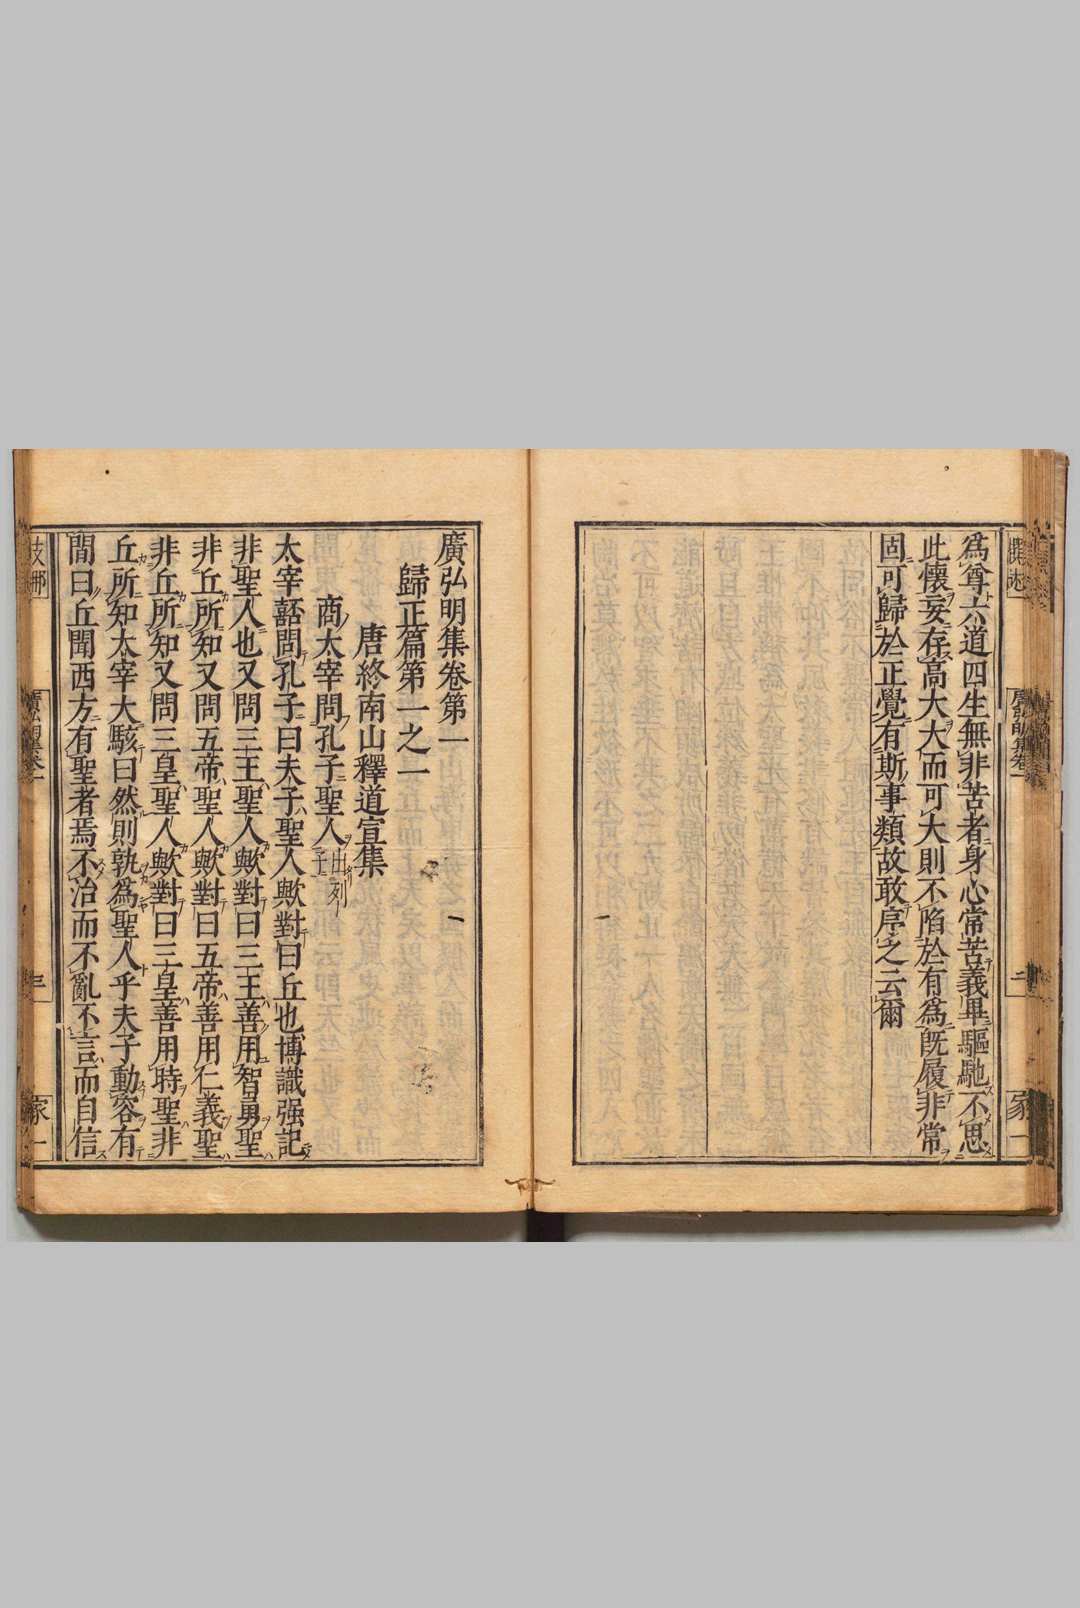 爲尊六道四生無非苦者身心常苦義畢驅馳不思
此懷妄存高大大而可大則不陷於有爲旣履非常
固可歸於正覺有斯事類故敢序之云爾
廣弘明集卷第一
歸正篇第一之一
唐終南山釋道宣集
商太宰問孔子聖人出列子
太宰嚭問孔子曰夫子聖人歟對曰丘也博識强記
非聖人也又問三王聖人歟對曰三王善用智勇聖
非丘所知又問五帝聖人歟對曰五帝善用仁義聖
非丘所知又問三皇聖人歟對曰三皇善用時聖非
丘所知太宰大駭曰然則孰爲聖人乎夫子動容有
間曰丘聞西方有聖者焉不治而不亂不言而自信